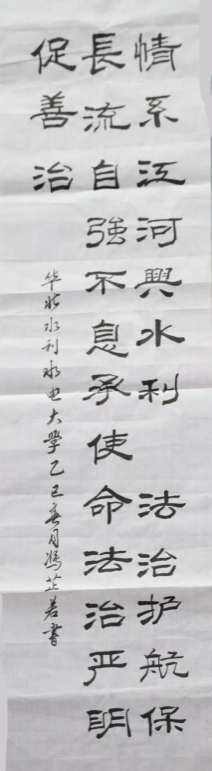 情系江河興水利 法治护航保
長流自强不息承使命法治严明
促善治
华北水利水电大學乙巳春月馮芷若書